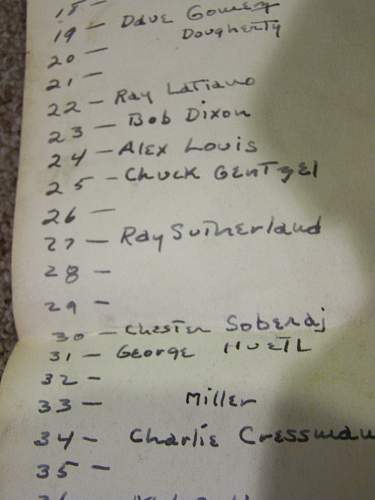 19 - Dave Gomez
Dougherty
20 -
21 -
22 - Ray Latiano
23 - Bob Dixon
24 - Alex Louis
25 - Chuck Gentzel
26 -
27 - Ray Sutherland
28 -
29 -
30 - Chester Soberaj
31 - George Huetl
32 -
33 - Miller
34 - Charlie Cressman
35 -